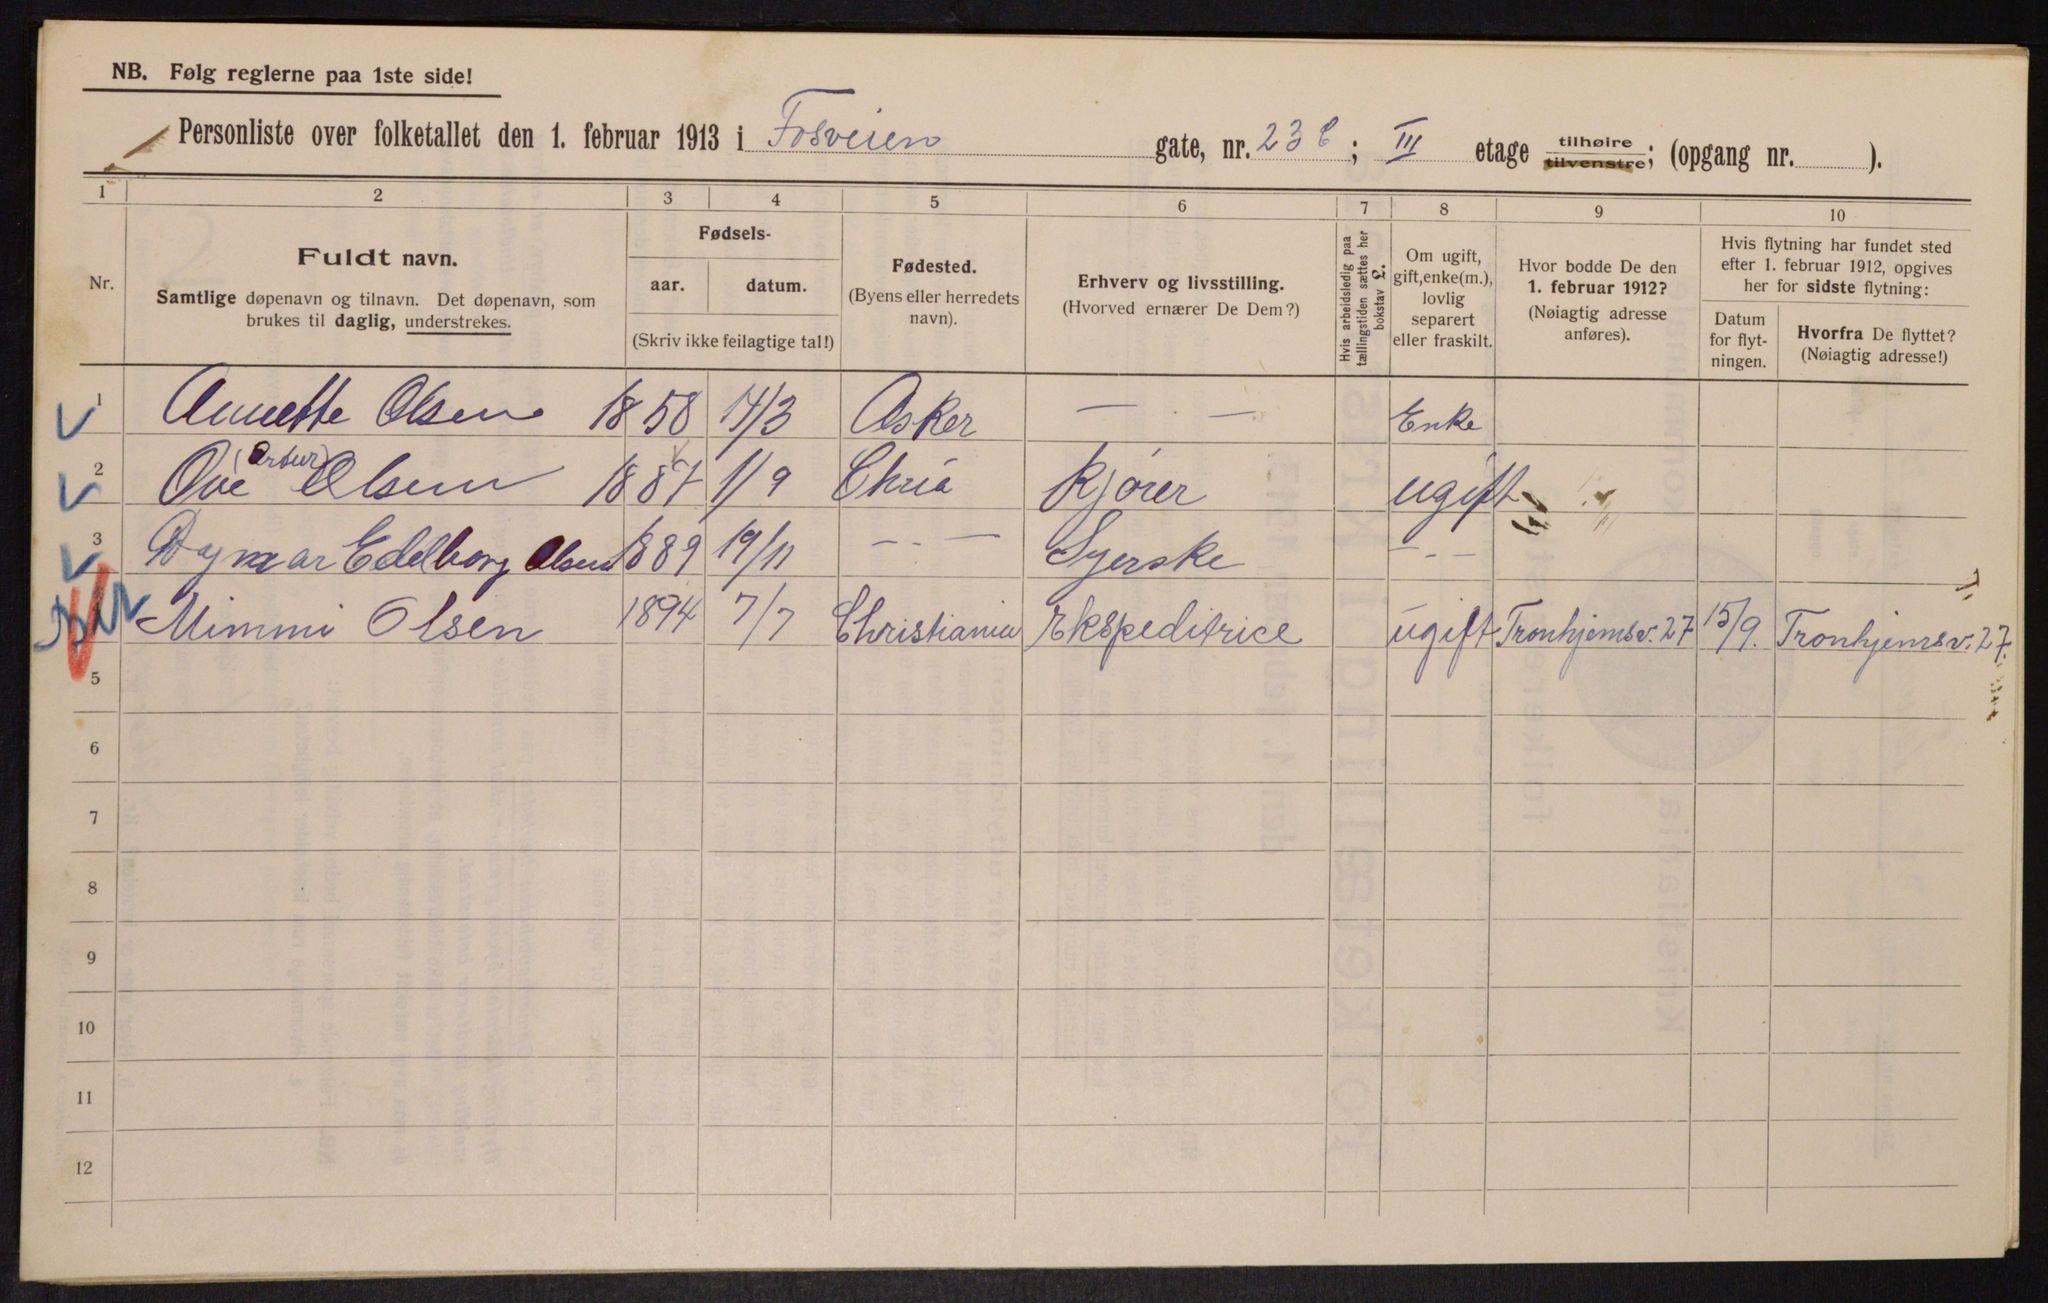 NB. Følg reglerne paa 1ste side!
Personliste over folketallet den 1. februar 1913 i Fosveien gate, nr. 23 c; III etage tilhøire tilvenstre; (opgang nr. ).
1 2 3 4 5 6 7 8 9 10
Nr.
Fuldt navn.
Samtlige døpenavn og tilnavn. Det døpenavn, som
brukes til daglig, understrekes.
Fødsels-
aar. datum.
(Skriv ikke feilagtige tal!)
Fødested.
(Byens eller herredets
navn).
Erhverv og livsstilling.
(Hvorved ernærer De Dem?)
Hvis arbeidsledig paa
tællingstiden sættes her
bokstav L.
Om ugift,
gift, enke(m.),
lovlig
separert
eller fraskilt.
Hvor bodde De den
1. februar 1912?
(Nøiagtig adresse
anføres).
Hvis flytning har fundet sted
efter 1. februar 1912, opgives
her for sidste flytning:
Datum
for flyt-
ningen.
Hvorfra De flyttet?
(Nøiagtig adresse!)
1 Annette Olsen 1858 14/3 Asker — - — Enke
(Artur)
2 Ove Olsen 1887 1/9 Chria Kjører ugift
3 Dagmar Edelborg Olsen 1889 19/11 — - — Syerske — - —
4 Mimmi Olsen 1894 7/7 Christiania Ekspeditrice ugift Tronhjemsv. 27 15/9. Tronhjemsv. 27.
5
6
7
8
9
10
11
12